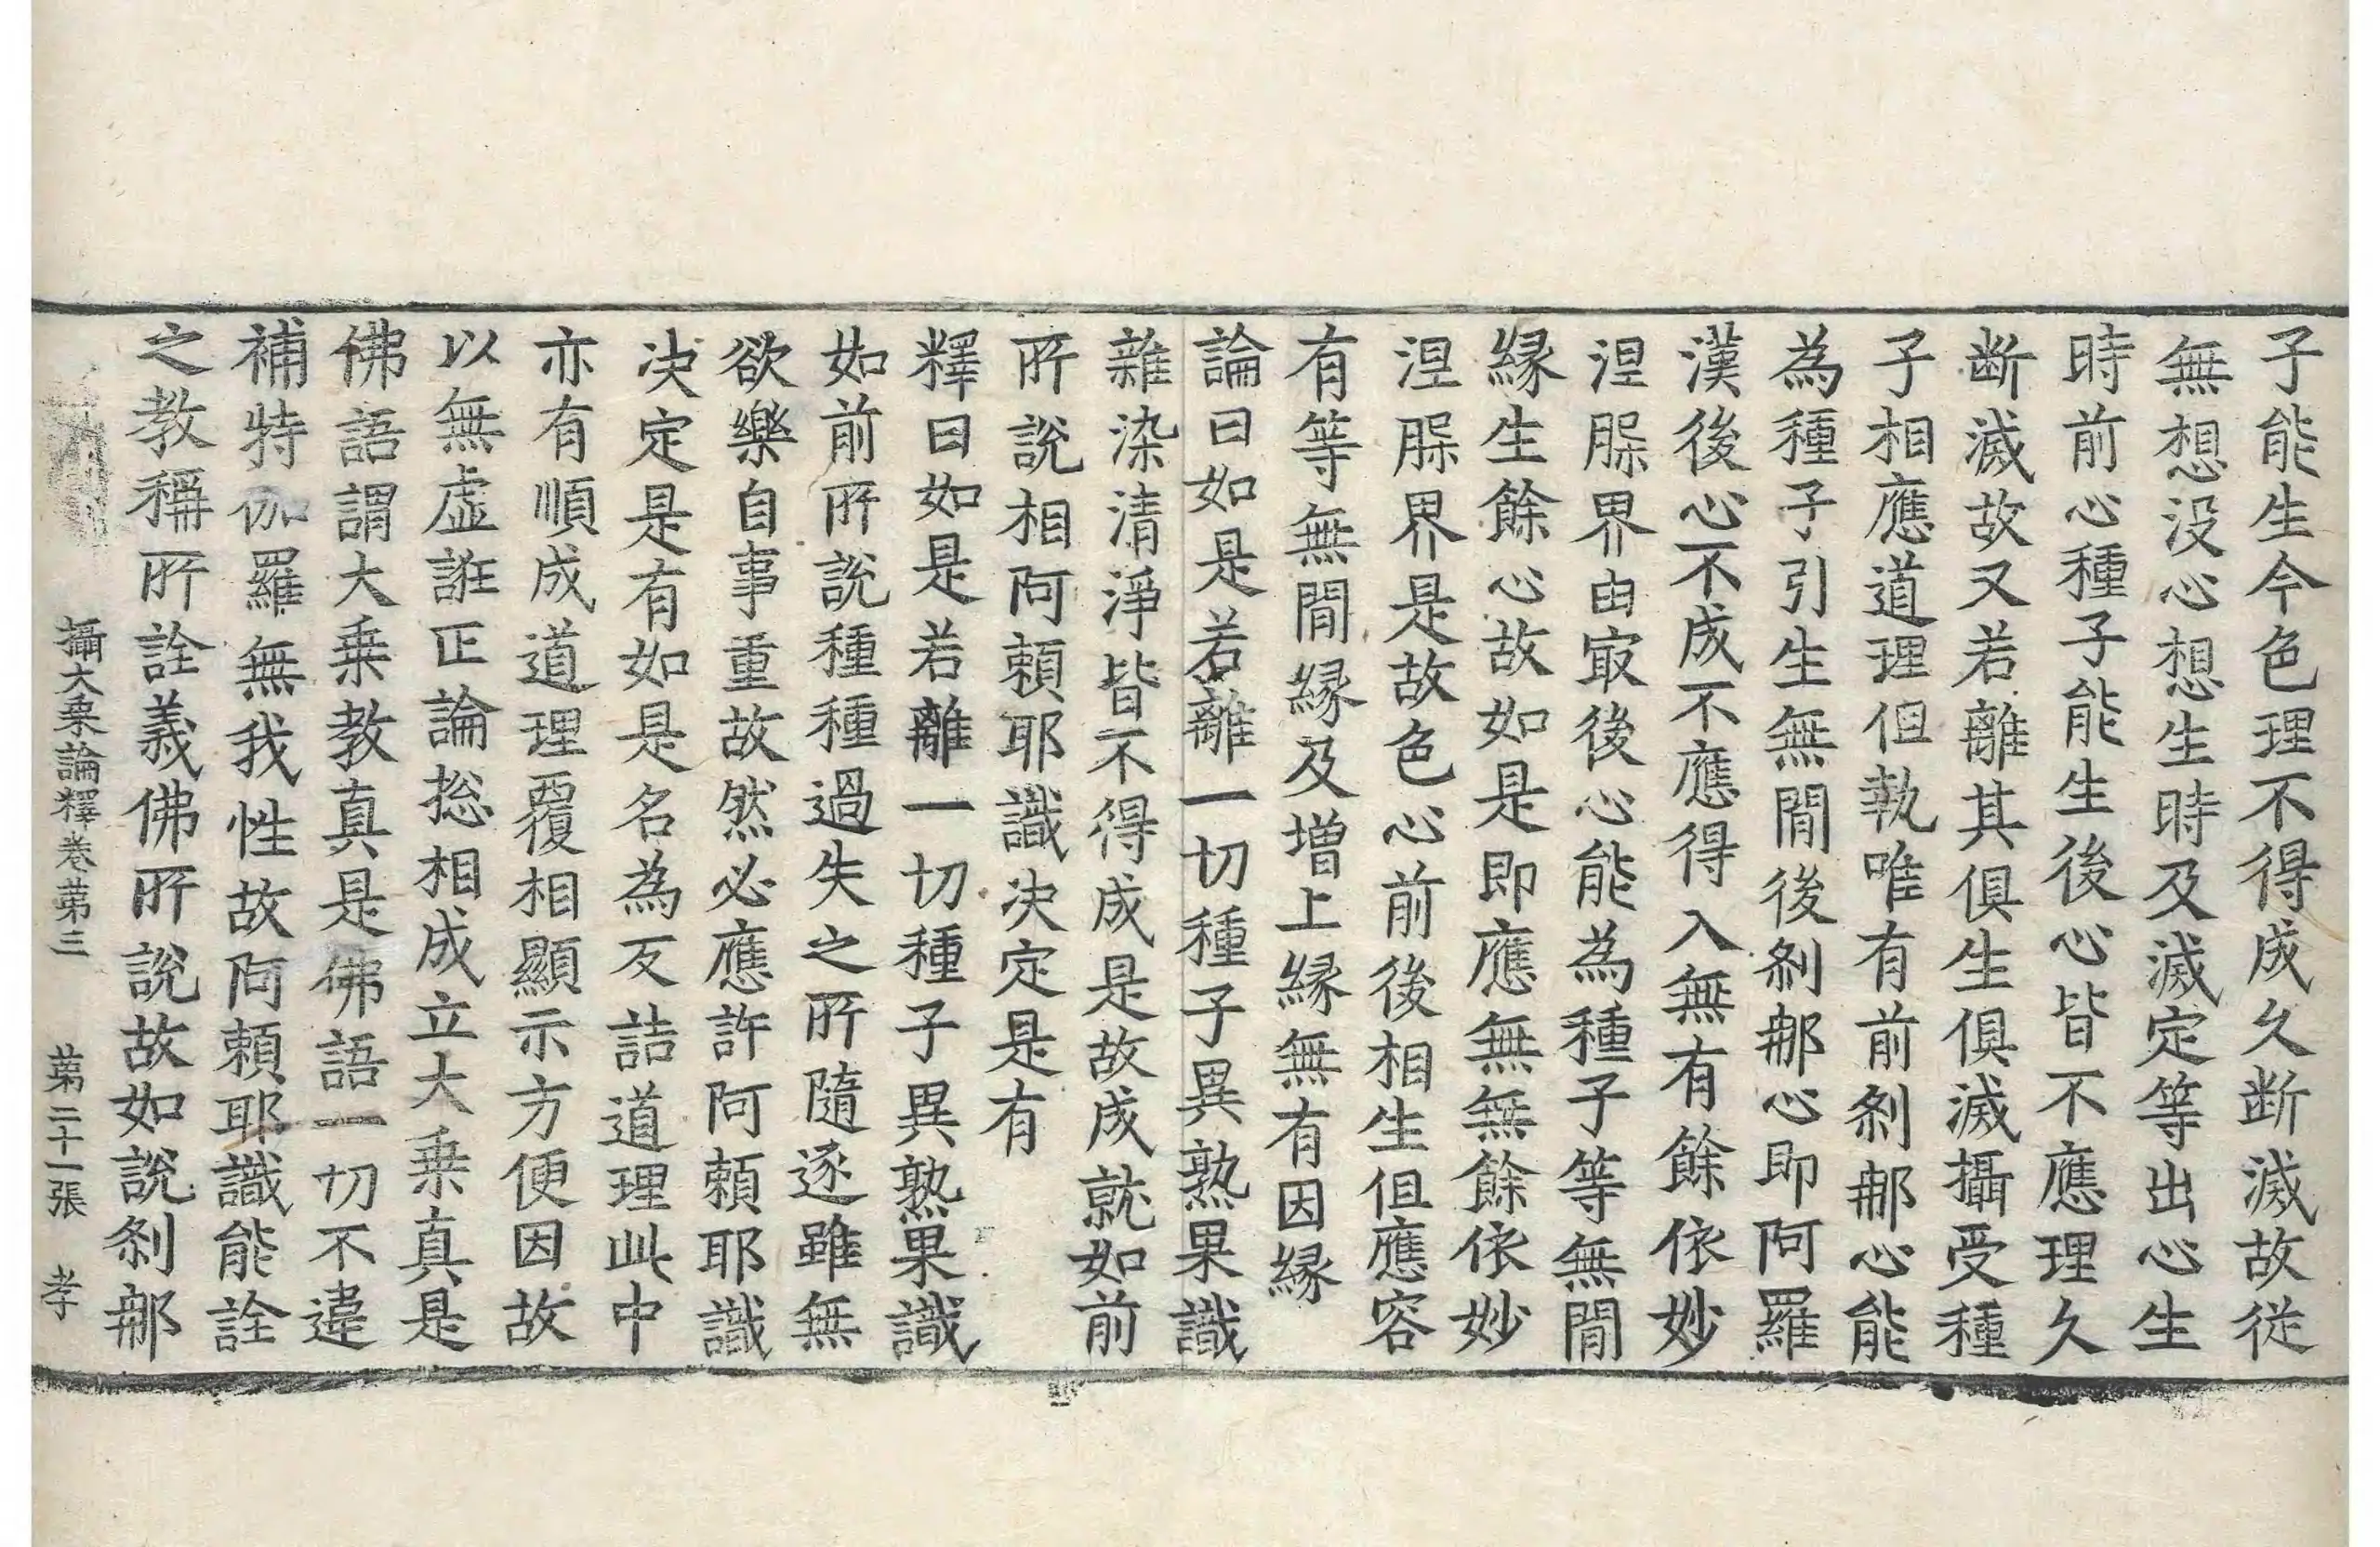 子能生今色理不得成久断滅故従
無想没心想生時及滅定等出心生
時前心種子能生後心皆不應理久
断滅故又若離其俱生俱滅攝受種
子相應道理但執唯有前剎那心能
為種子引生無間後剎那心即阿羅
漢後心不成不應得入無有餘依妙
涅槃界由㝡後心能為種子等無間
緣生餘心故如是即應無無餘依妙
涅槃界是故色心前後相生但應容
有等無間緣及增上緣無有因緣
論曰如是若離一切種子異熟果識
雜染清淨皆不得成是故成就如前
所說相阿頼耶識決定是有
釋曰如是若離一切種子異熟果識
如前所說種種過失之所隨逐雖無
欲樂自事重故然必應許阿頼耶識
決定是有如是名為反詰道理此中
亦有順成道理覆相顯示方便因故
以無虛誑正論捴相成立大乗真是
佛語謂大乗教真是佛語一切不違
補特伽羅無我性故阿頼耶識能詮
之教稱所詮義佛所說故如說剎那
攝大乗論釋卷第三 第二十一張 孝